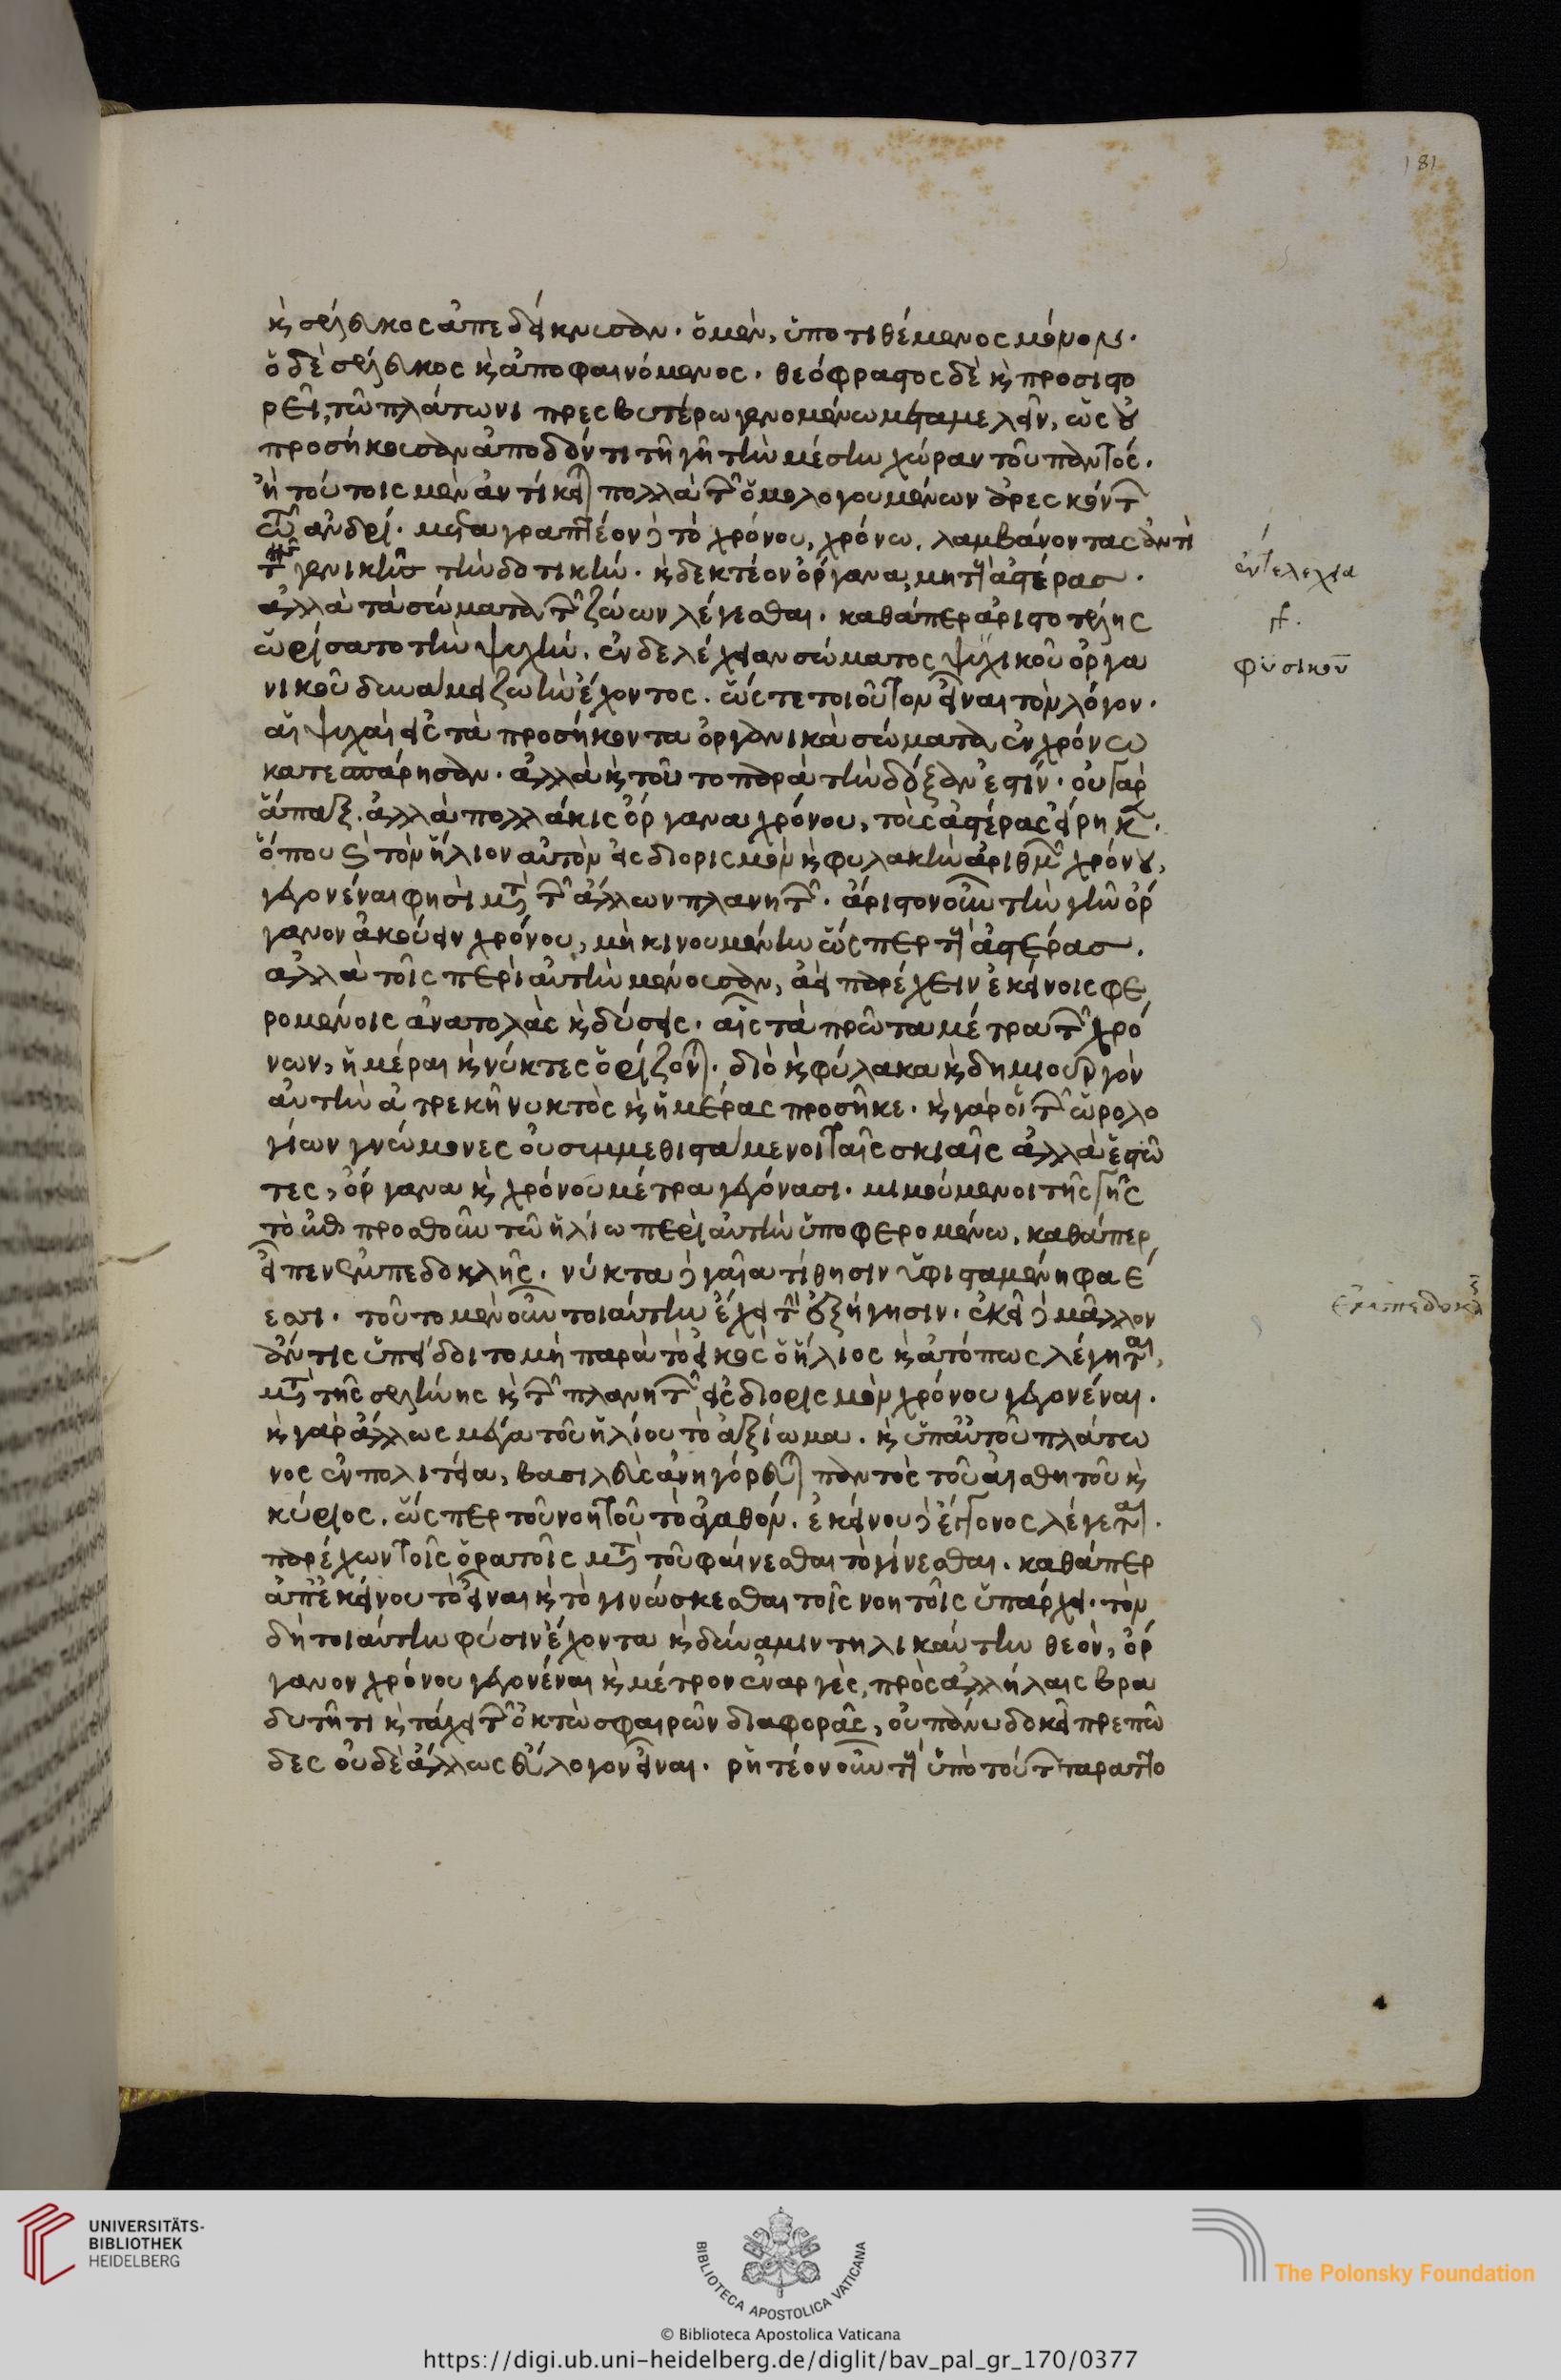 181
κ(αὶ) σέλευκος ἀπεδείκνυσαν. ὁ μὲν, ὑποτιθέμενος μόνον·
ὁ δὲ σέλευκος καὶ ἀποφαινόμενος. θεόφραστος δὲ καὶ προσιστο
ρεῖ, τῶ πλάτωνι πρεσβυτέρω γενομένω μεταμέλειν, ὡς οὐ
προσήκουσαν ἀποδόντι τῆ γῆ τὴν μέσην χώραν τοῦ παντός.
ἢ τούτοις μὲν ἀντίκειται πολλὰ τῶν ὁμολογουμένων ἀρεσκόντων
τῶ ἀνδρί. μεταγραπτέον δὲ τὸ χρόνου, χρόνω. λαμβάνοντας ἀντὶ
τῆς γενικῆς τὴν δοτικήν. καὶ δεκτέον ὄργανα, μὴ τοὺς ἀστέρας.
ἀλλὰ τὰ σώματα τῶν ζώων λέγεσθαι. καθάπερ ἀριστοτέλης
ὡρίσατο τὴν ψυχήν. ἐνδελέχειαν σώματος ψυχικοῦ ὀργα
νικοῦ δυνάμει ζωὴν ἔχοντος. ὥστε τοιοῦτον εἶναι τὸν λόγον.
αἱ ψυχαὶ εἰς τὰ προσήκοντα ὀργανικὰ σώματα ἐν χρόνω
κατεσπάρησαν. ἀλλὰ καὶ τοῦτο παρὰ τὴν δόξαν ἐστίν. οὐ γὰρ
ἅπαξ. ἀλλὰ πολλάκις ὄργανα χρόνου, τοὺς ἀστέρας εἴρηκεν.
ὅπου καὶ τὸν ἥλιον αὐτὸν εἰς διορισμὸν καὶ φυλακὴν ἀριθμῶν χρόνου,
γεγονέναι φησὶ μετὰ τῶν ἄλλων πλανήτων. ἄριστον οὖν τὴν γῆν ὄρ
γανον ἀκούειν χρόνου, μὴ κινουμένην ὥσπερ τοὺς ἀστέρας.
ἀλλὰ τοῖς περὶ αὐτὴν μένουσαν, ἀεὶ παρέχειν ἐκείνοις φε
ρομένοις ἀνατολὰς καὶ δύσεις. αἷς τὰ πρῶτα μέτρα τῶν χρό
νων, ἡμέραι καὶ νύκτες ὁρίζονται. διὸ καὶ φύλακα καὶ δημιουργὸν
αὐτὴν ἀτρεκῆ νυκτὸς καὶ ἡμέρας προσῆκε. καὶ γὰρ οἱ τῶν ὡρολο
γίων γνώμονες οὐ συμμεθιστάμενοι ταῖς σκιαῖς ἀλλὰ ἑστῶ
τες, ὄργανα καὶ χρόνου μέτρα γεγόνασι. μιμούμενοι τῆς γῆς
τὸ ἐπιπροσθοῦν τῶ ἡλίω περὶ αὐτὴν ὑποφερομένω, καθάπερ
εἶπεν ἐμπεδοκλῆς. νύκτα δὲ γαῖα τίθησιν ὑφισταμένη φαέ
εσσι. τοῦτο μὲν οὖν τοιαύτην ἔχει τὴν ἐξήγησιν. ἐκεῖ δὲ μᾶλλον
ἄν τις ὑπείδοιτο μὴ παρὰ τὸ εἰκὸς ὁ ἥλιος καὶ ἀτόπως λέγηται,
μετὰ τῆς σελήνης καὶ τῶν πλανητῶν εἰς διορισμὸν χρόνου γεγονέναι.
καὶ γὰρ ἄλλως μέγα τοῦ ἡλίου τὸ ἀξίωμα. καὶ ὑπ' αὐτοῦ πλάτω
νος ἐν πολιτεία, βασιλεὺς ἀνηγόρευται παντὸς τοῦ αἰσθητοῦ καὶ
κύριος. ὥσπερ τοῦ νοητοῦ τὸ ἀγαθόν. ἐκείνου δὲ ἔκγονος λέγεται.
παρέχων τοῖς ὁρατοῖς μετὰ τοῦ φαίνεσθαι τὸ γίνεσθαι. καθάπερ
ἀπ' ἐκείνου τὸ εἶναι καὶ τὸ γινώσκεσθαι τοῖς νοητοῖς ὑπάρχει. τὸν
δὴ τοιαύτην φύσιν ἔχοντα καὶ δύναμιν τηλικαύτην θεὸν, ὄρ
γανον χρόνου γεγονέναι καὶ μέτρον ἐναργὲς, πρὸς ἀλλήλαις βρα
δυτῆτι καὶ τάχει τῶν ὀκτὼ σφαιρῶν διαφορᾶς, οὐ πάνυ δοκεῖ πρεπῶ
δες οὐδὲ ἄλλως εὔλογον εἶναι. ῥητέον οὖν τοὺς ὑπὸ τούτων ταραττο
ἐντελεχεια
φυσικοῦ
Ἐμπεδοκλ
UNIVERSITÄTS-
BIBLIOTHEK
HEIDELBERG
BIBLIOTECA APOSTOLICA VATICANA
The Polonsky Foundation
© Biblioteca Apostolica Vaticana
https://digi.ub.uni-heidelberg.de/diglit/bav_pal_gr_170/0377